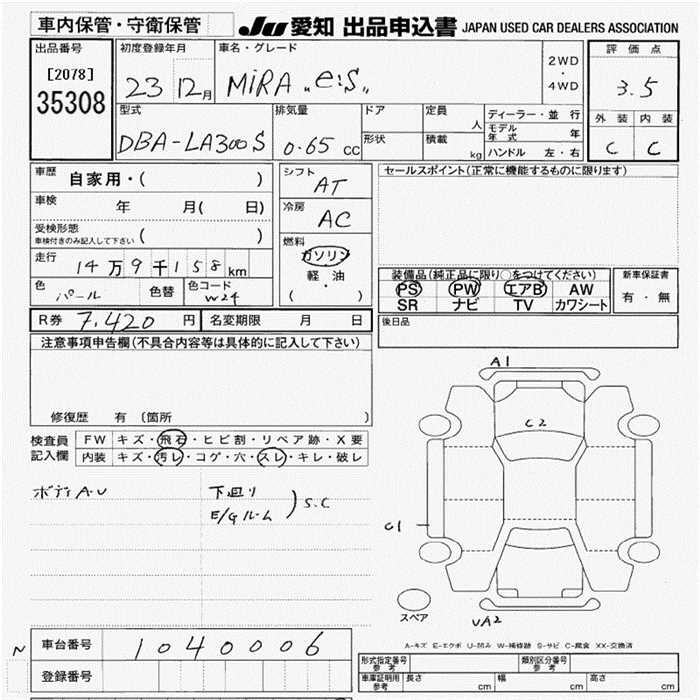 車内保管・守衛保管
JU 愛知 出品申込書 JAPAN USED CAR DEALERS ASSOCIATION
出品番号
[2078]
35308
初度登録年月
23 12月
車名・グレード
MiRA "e:S"
2WD
・
4WD
評価点
3.5
外装 内装
C C
型式
DBA-LA300S
排気量
0.65 cc
ドア
形状
定員
人
積載
kg
ディーラー・並行
モデル年式 年
ハンドル 左・右
車歴
自家用・( )
車検
年 月( 日)
受検形態
車検付きのみ記入して下さい ( )
走行
14万9千158km
色
パール
色替
色コード
W24
シフト
AT
冷房
AC
燃料
ガソリン
軽・油
( )
セールスポイント(正常に機能するものに限ります)
装備品(純正品に限り○をつけてください)
PS PW エアB AW
SR ナビ TV カワシート
新車保証書
有・無
後日品
R券 7,420 円
名変期限 月 日
注意事項申告欄(不具合内容等は具体的に記入して下さい)
修復歴 有 (箇所 )
検査員
記入欄
FW キズ・飛石・ヒビ割・リペア跡・X要
内装 キズ・汚レ・コゲ・穴・スレ・キレ・破レ
ボディA・U
下廻り
E/Gルーム
S.C
A1
C2
C1
スペア
UA2
A-キズ E-エクボ U-凹み W-補修跡 S-サビ C-腐食 XX-交換済
N
車台番号
1040006
登録番号
形式指定番号
参考
類別区分番号
参考
車庫証明用
参考
長さ cm
幅 cm
高さ cm